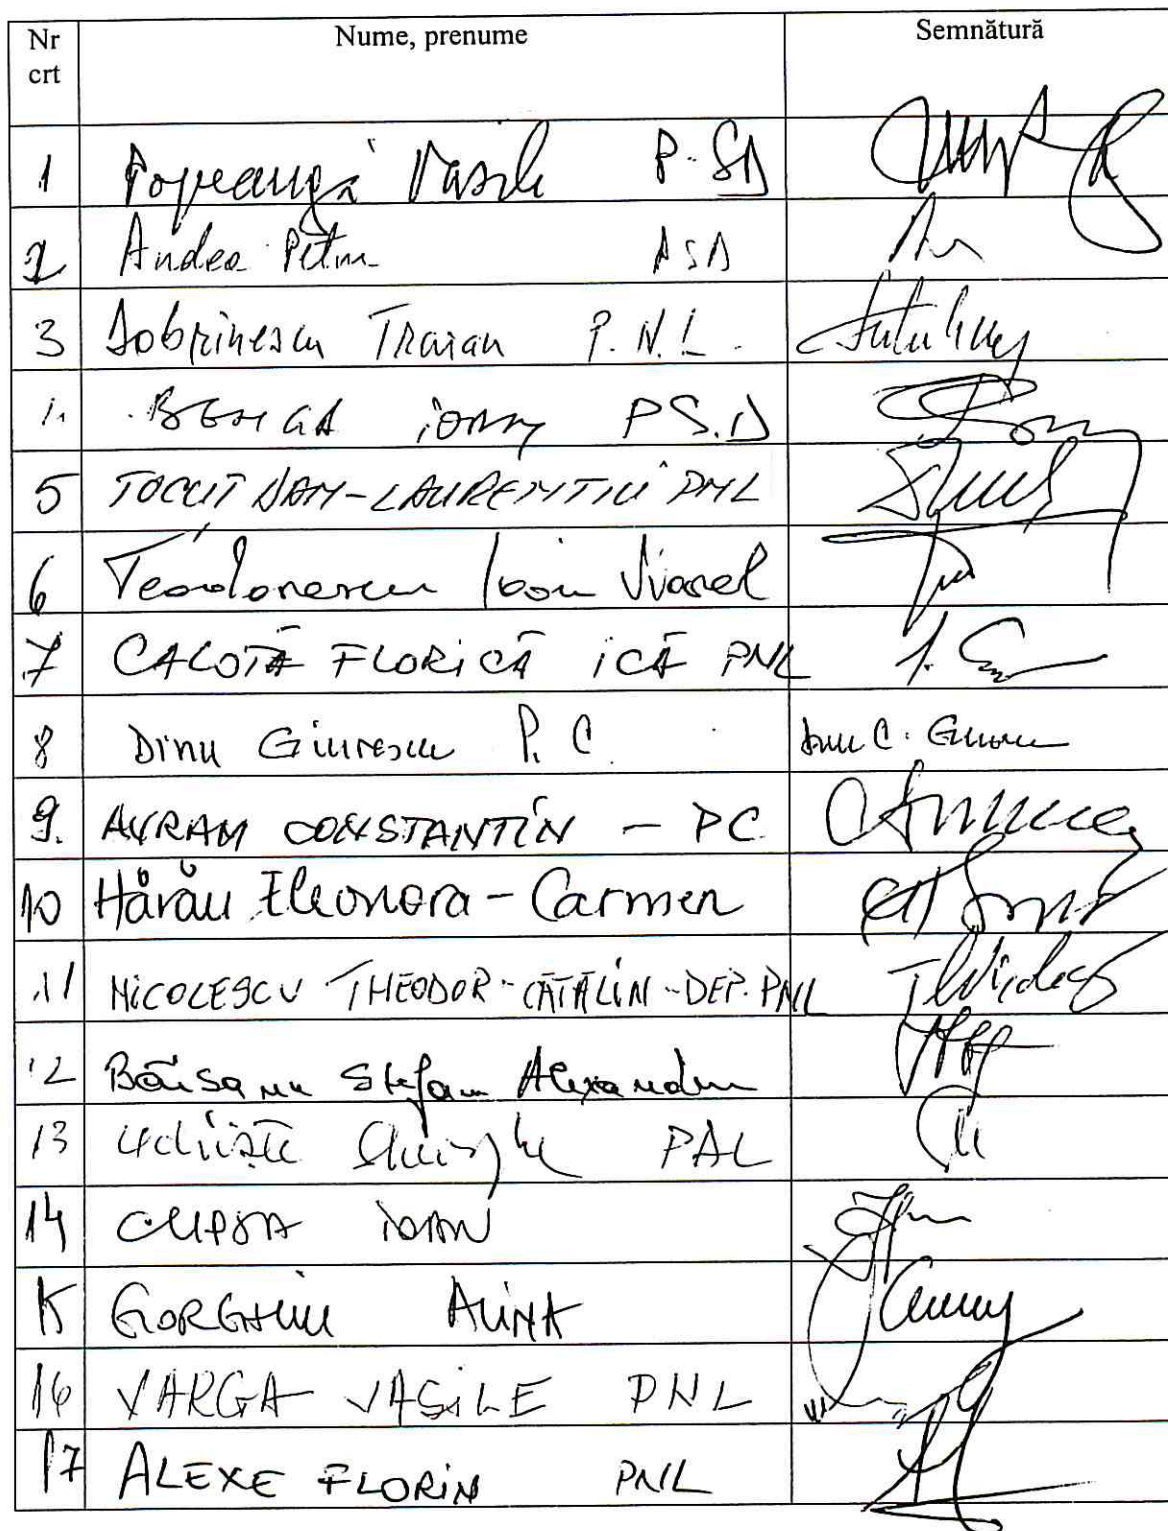 Nr crt Nume, prenume Semnătură
1 Popeangă Vasile P.SD
2 Andea Petru PSD
3 Dobrinescu Traian P.N.L.
BENGA ioan PS.D
5 TOCUT DAN-LAURENTIU PNL
6 Teodorescu Ioan Viorel
7 CALOTĂ FLORICĂ ICĂ PNL
8 Dinu Giurescu P.C. Dinu C. Giurescu
9. AVRAM CONSTANTIN - PC
10 Hărău Eleonora-Carmen
11 NICOLESCU THEODOR-CĂTĂLIN-DEP.PNL
12 Băişanu Ştefan Alexandru
13
14 CUPŞA IOAN
15 GORGHIU ALINA
16 VARGA VASILE PNL
17 ALEXE FLORIN PNL